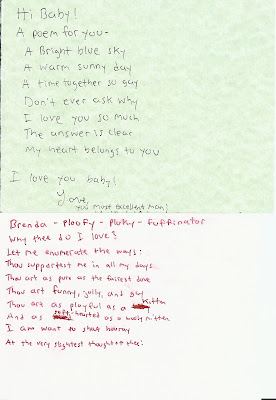 Hi Baby!
A poem for you-
A Bright blue sky
A warm sunny day
A time together so gay
Don't ever ask why
I love you so much
The answer is clear
My heart belongs to you
I love you baby!
Your
you most excellent man!
Brenda - Ploofy - Plurky - Fuffinator
Why thee do I love?
Let me enumerate the ways:
Thou supportest me in all my days
Thou art as pure as the fairest dove
Thou art funny, jolly, and gay
Thou art as playful as a kitten
And as soft-hearted as a wooly mitten
I am want to shout hooray
At the very slightest thought of thee!